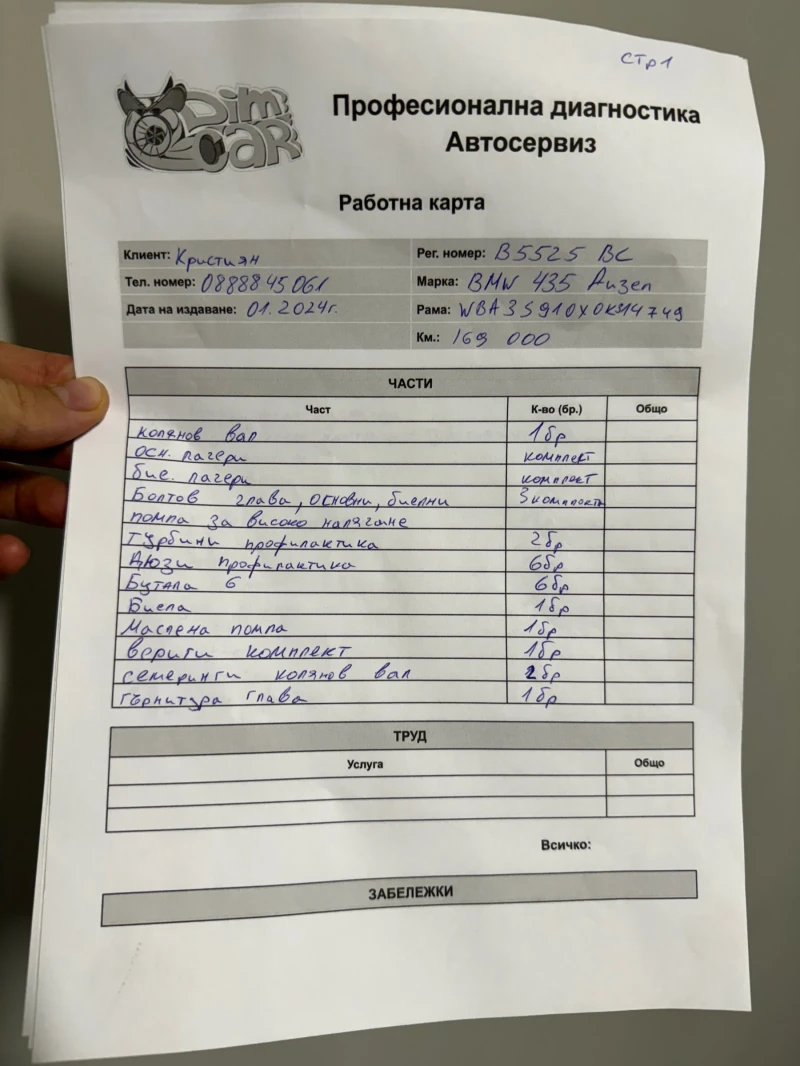 стр1
Dim CAR
Професионална диагностика
Автосервиз
Работна карта
Клиент: Кристиян
Рег. номер: В5525 ВС
Тел. номер: 0888845061
Марка: BMW 435 Дизел
Дата на издаване: 01.2024г.
Рама: WBA3S910X0KS14749
Км.: 169 000
ЧАСТИ
Част К-во (бр.) Общо
колянов вал 1бр
осн. лагери комплект
био. лагери комплект
Болтов глава, основни, биелни 3 комплекта
помпа за високо налягане
Турбини профилактика 2бр
Дюзи профилактика 6бр
Бутала 6 6бр
Биела 1бр
Маслена помпа 1бр
вериги комплект 1бр
семеринги колянов вал 2бр
гърнитура глава 1бр
ТРУД
Услуга Общо
Всичко:
ЗАБЕЛЕЖКИ